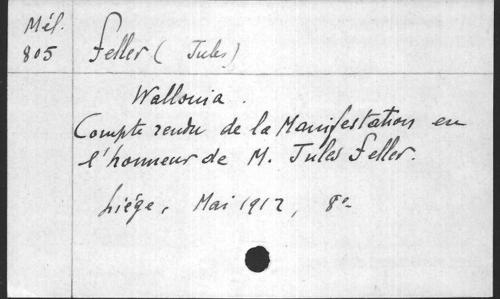 Mél.
805
Feller ( Jules)
Wallonia.
Compte rendu de la Manifestation en
l'honneur de M. Jules Feller.
Liége, Mai 1912, 8°